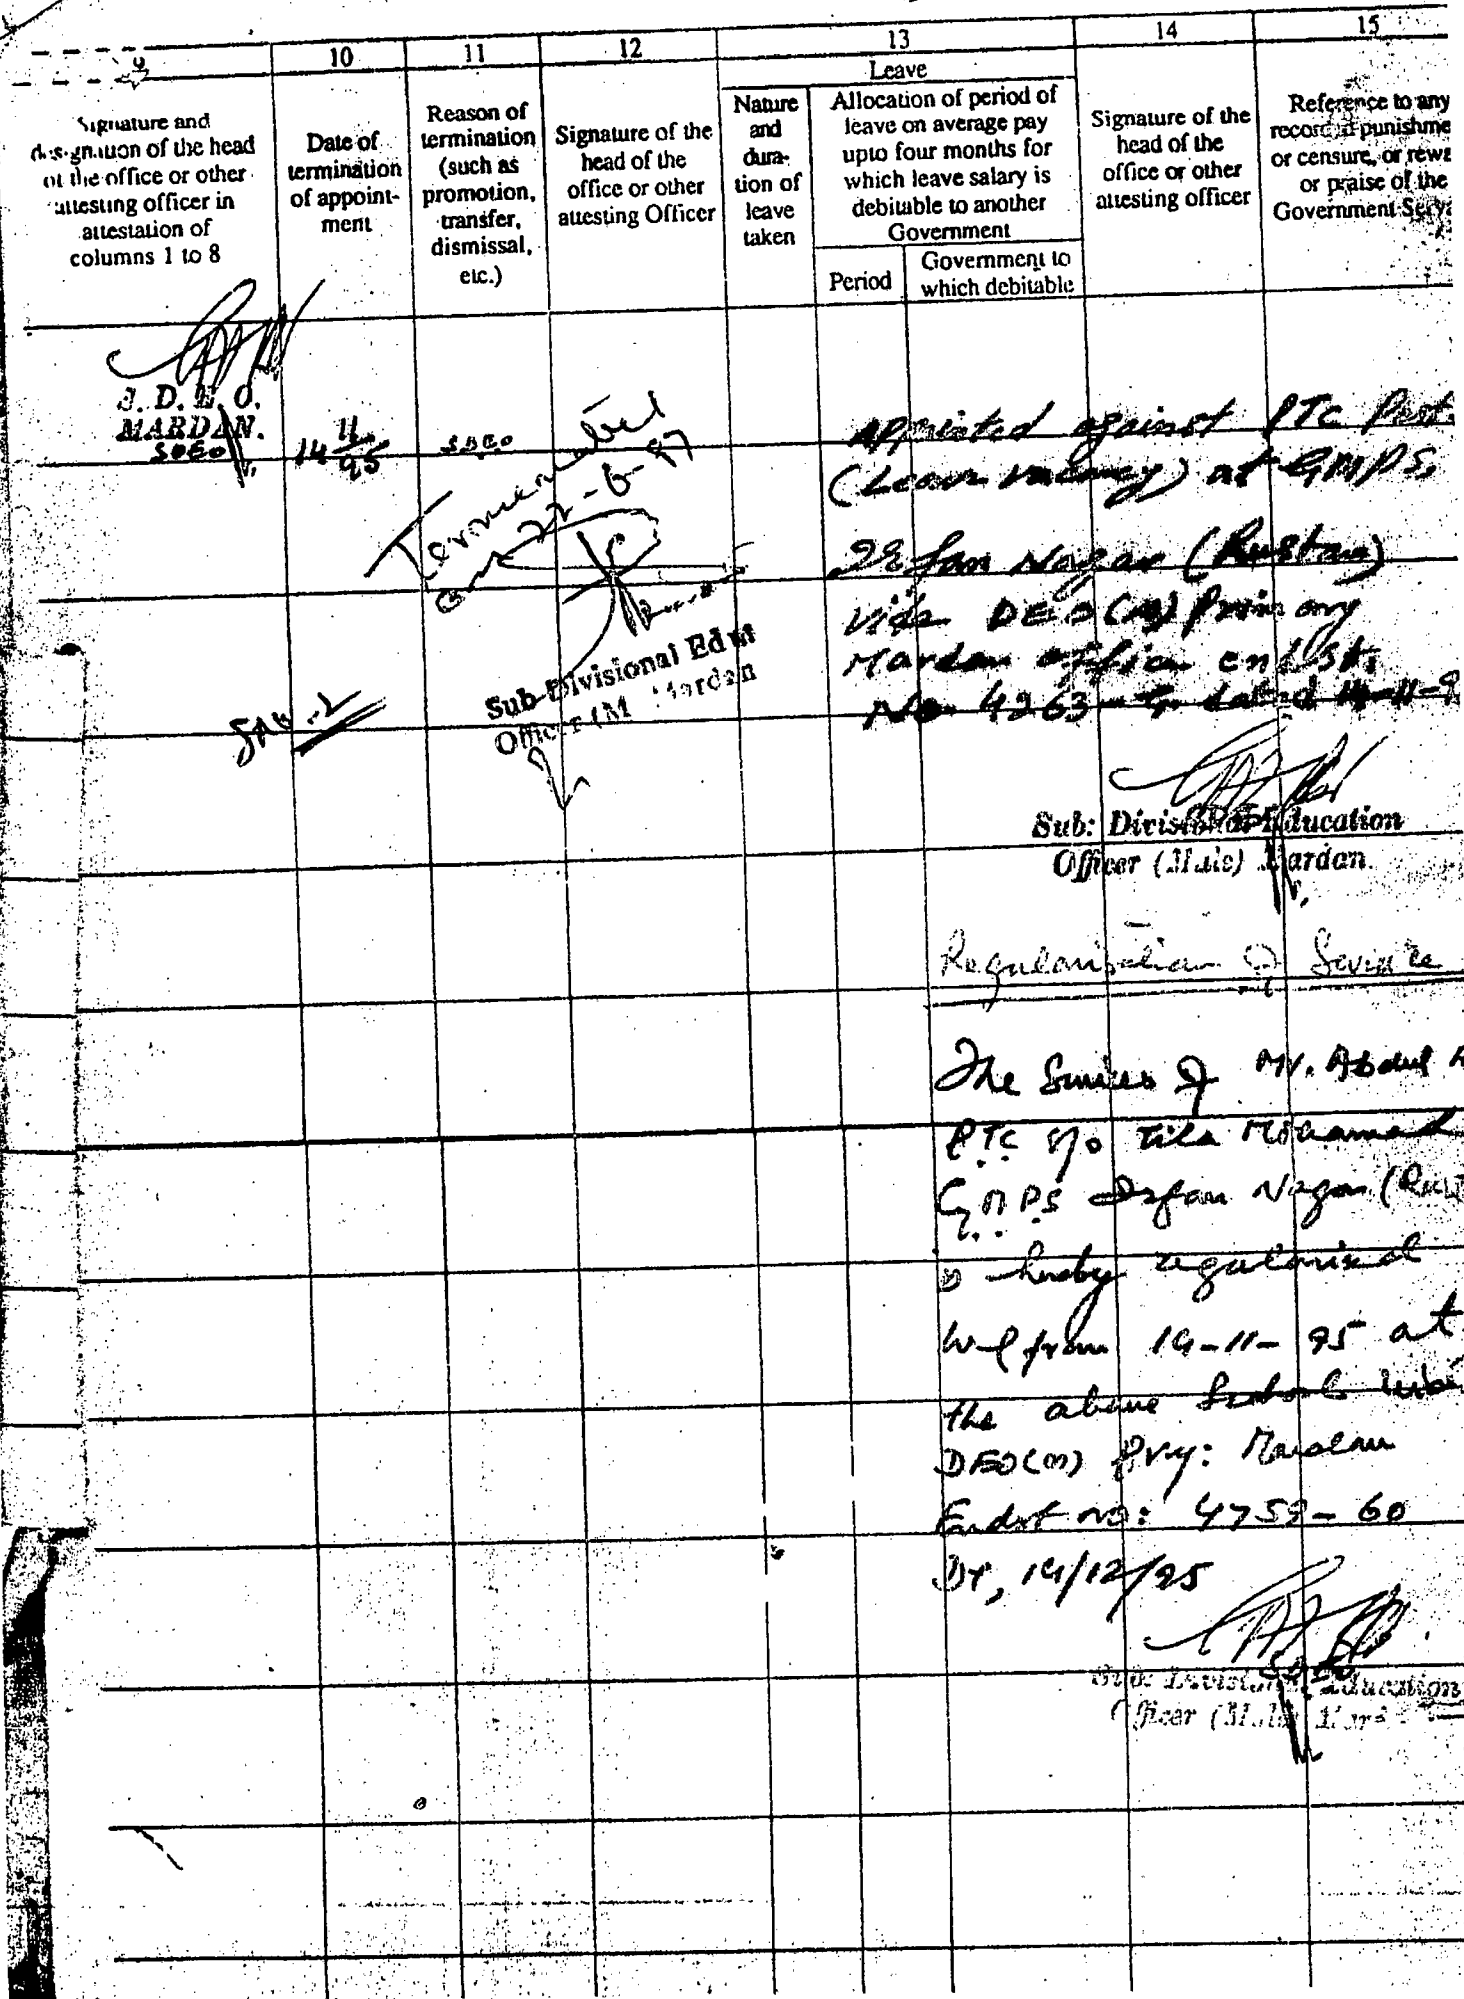 9 10 11 12 13 14 15
Leave
Signature and
designation of the head
of the office or other
attesting officer in
attestation of
columns 1 to 8
Date of
termination
of appoint-
ment
Reason of
termination
(such as
promotion,
transfer,
dismissal,
etc.)
Signature of the
head of the
office or other
attesting Officer
Nature
and
dura-
tion of
leave
taken
Allocation of period of
leave on average pay
upto four months for
which leave salary is
debitable to another
Government
Period
Government to
which debitable
Signature of the
head of the
office or other
attesting officer
Reference to any
recorded punishme
or censure, or rewa
or praise of the
Government Serva
S. D. E. O.
MARDAN.
SDEO
14 11/95
SDEO
22-6-97
Sub-Divisional Edu
Officer (M Mardan
appointed against PTC Post
(Leave vacancy) at GMPS,
Irfan Nagar (Rustam)
vide DEO(M) Primary
Mardan office endst:
No 4263-G dated 14-11-9
Sub: Divisional Education
Officer (Male) Mardan
Regularisation of Service
The Services of Mr. Abdul
PTC S/o Tila Mohammad
G.M.P.S Irfan Nagar (Rus
is hereby regularised
w-e from 14-11-95 at
the above School
DEO(M) Pry: Mardan
Endst no: 4759-60
Dt, 14/12/95
SDEO
Sub: Divisional Education
Officer (Male) Mard